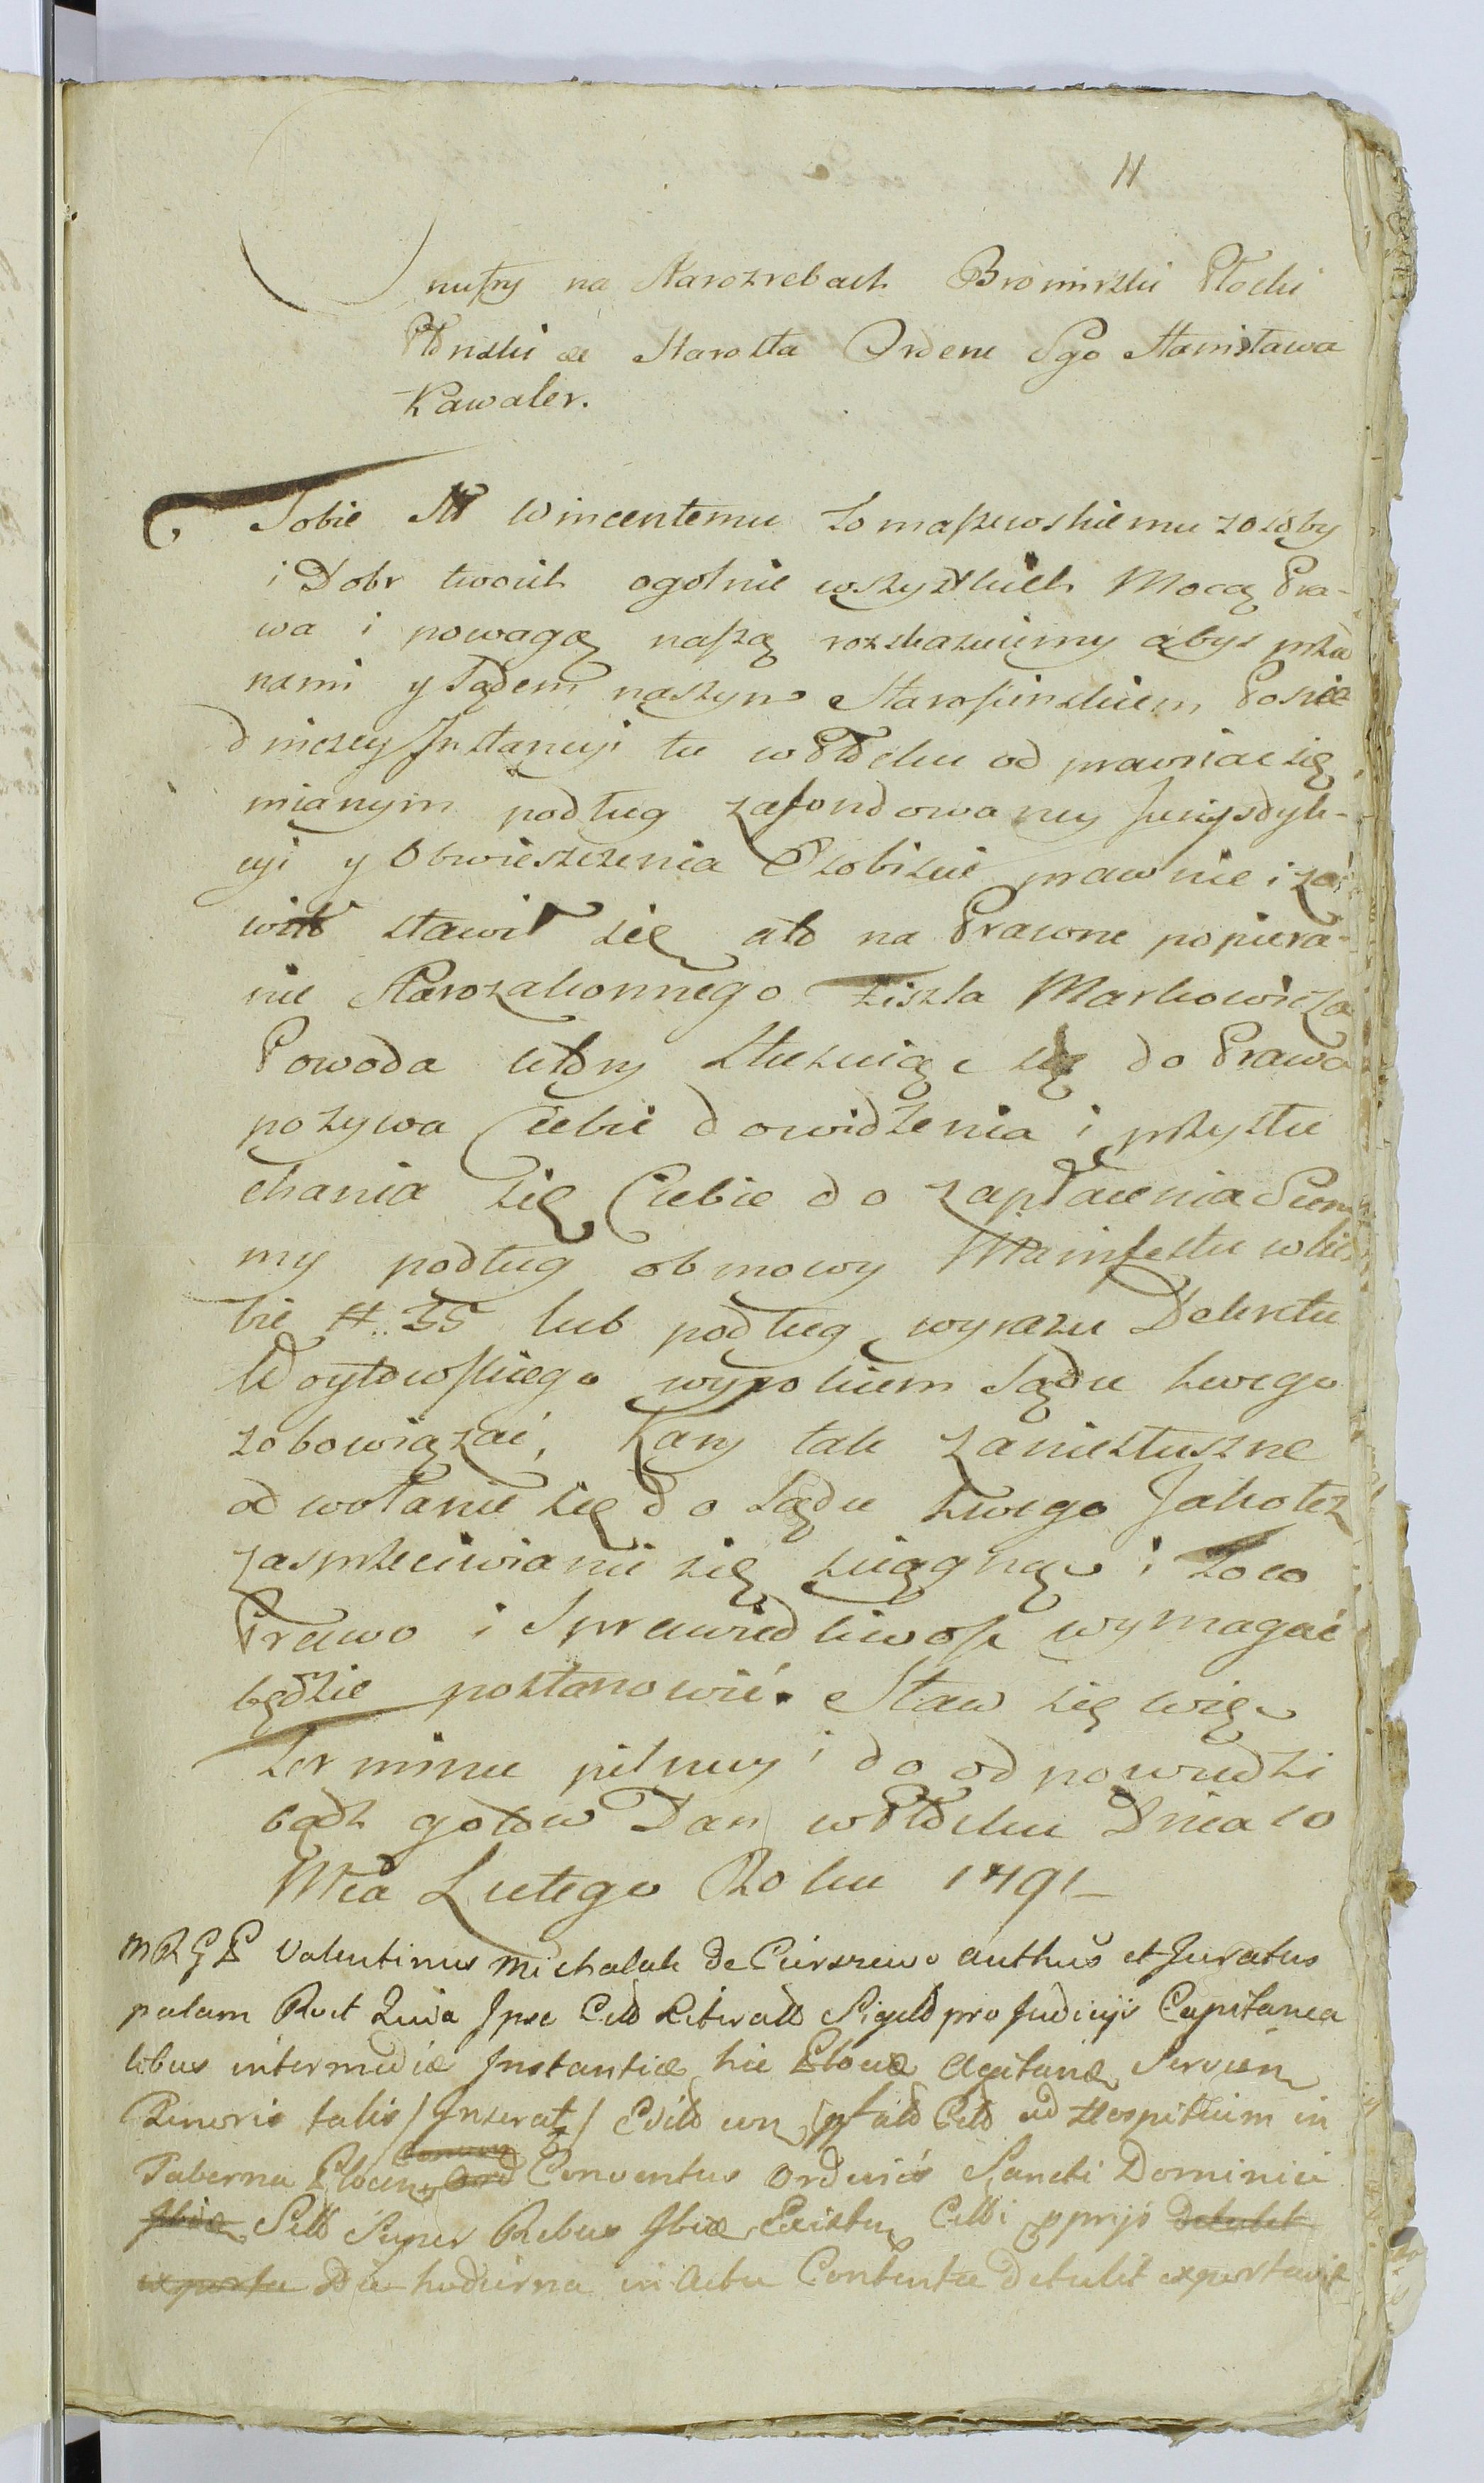 11
Onufry na Starozrebach Bromirski Płocki
Płonski &c Starosta Orderu Sgo Stanisława
Kawaler.
Tobie Ur Wincentemu Tomaszewskiemu z osoby
i Dobr twoich ogolnie wszystkich Mocą Pra-
wa i powagą naszą rozkazuiemy abys przed
nami y Sądem naszym Starościnskiem Posrze
dniczey Instancyi tu w Płocku odprawiac się
mianym podług zafondowaney Juryzdyk-
cyi y Obwieszczenia Osobiscie prawnie i za
wito stawił się a to na Prawne popiera-
nie Starozakonnego Ziskla Markowicza
Powoda ktory stosuiąc się do Prawa
pozywa Ciebie do widzenia i przysłu
chania się Ciebie do zapłacenia Sum
my podług obmowy Manifestu w licz
bie #. 35 lub podług wyrazu Dekretu
Woytowskiego wyrokiem Sądu swego
zobowiązać, Kary tak za niesłuszne
odwołanie się do Sądu swego Jako też
za sprzeciwianie się sciągnąc i to co
Prawo i Sprawiedliwość wymagać
będzie postanowić. Staw się więc
Terminu pilnuy i do odpowiedzi
bądz gotow Dan w Płocku Dnia 10
Mca Lutego Roku 1791
MRGP Valentinus Michalak de Cierszewo authus et Juratus
palam Rect Quia Ipse Citto Literatto Sigilto pro Judicijs Capitanea
libus intermediæ Instantiæ hic Plociæ Agitandæ Servien
Tenoris talis / Inserat / Edito cun pfato Citto ad Hospitium in
Taberna Plocen Conventus Ordinis Sancti Dominici
Sitto Super Rebus Ibidæ Existen Citti pprijs
Die hodierna in Actu Contenta detulit exportavit